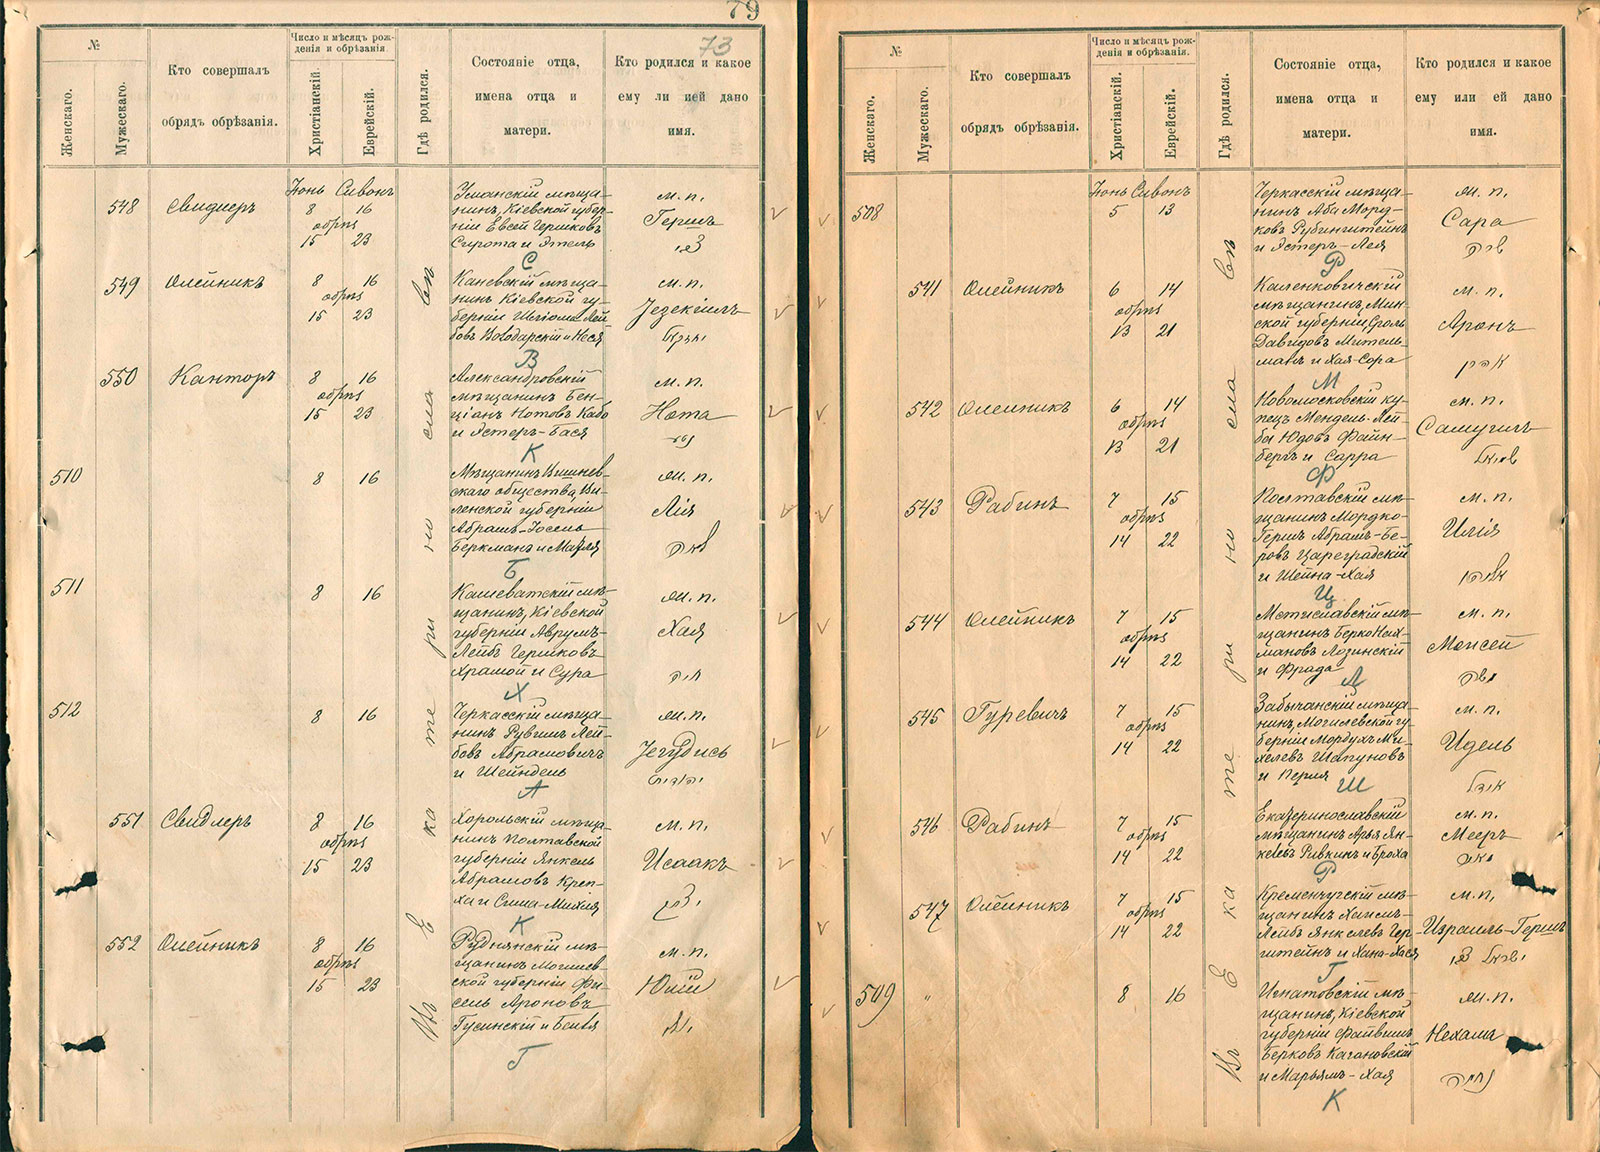 79
73
№
Женскаго.
Мужескаго.
Кто совершалъ
обрядъ обрѣзанія.
Число и мѣсяцъ рож-
денія и обрѣзанія.
Христіанскій.
Еврейскій.
Гдѣ родился.
Состояніе отца,
имена отца и
матери.
Кто родился и какое
ему или ей дано
имя.
Іюнь Сивонъ
548 Свидлеръ
8 16
обрѣз
15 23
Уманскій мѣща-
нинъ, Кіевской губер-
ніи Евсей Гершковъ
Сирота и Этель
С
м. п.
Гершъ
549 Олейникъ
8 16
обрѣз
15 23
Каневскій мѣща-
нинъ Кіевской гу-
берніи Шліома Лей-
бовъ Володарскій и Неся
В
м. п.
Іезекіиль
550 Канторъ
8 16
обрѣз
15 23
Александровскій
мѣщанинъ Бен-
ціанъ Нотовъ Кабо
и Эстеръ-Бася
К
м. п.
Нота
נטע
510
8 16
Мѣщанинъ Вишнев-
скаго общества, Ви-
ленской губерніи
Абрамъ-Іосель
Беркманъ и Матля
Б
м. п.
Лія
לאה
511
8 16
мѣ-
щанинъ, Кіевской
губерніи Аврумъ-
Лейбъ Гершковъ
Храмой и Сура
Х
м. п.
Хая
חיה
512
8 16
Черкасскій мѣща-
нинъ Рувинъ Лей-
бовъ Абрамовичъ
и Шейндель
А
м. п.
Іегудись
יהודית
551 Свидлеръ
8 16
обрѣз
15 23
Хорольскій мѣща-
нинъ Полтавской
губерніи Янкель
Абрамовъ Креп-
ха и Сима-Михля
К
м. п.
Исаакъ
יצחק
552 Олейникъ
8 16
обрѣз
15 23
Руднянскій мѣ-
щанинъ Могилев-
ской губерніи Фи-
сель Ароновъ
Гусинскій и Бейля
Г
м. п.
Въ Екатеринославлѣ
№
Женскаго.
Мужескаго.
Кто совершалъ
обрядъ обрѣзанія.
Число и мѣсяцъ рож-
денія и обрѣзанія.
Христіанскій.
Еврейскій.
Гдѣ родился.
Состояніе отца,
имена отца и
матери.
Кто родился и какое
ему или ей дано
имя.
Іюнь Сивонъ
508
5 13
Черкасскій мѣща-
нинъ Аба Морд-
ковъ Рубинштейнъ
и Эстеръ-Лея
Р
м. п.
Сара
שרה
541 Олейникъ
6 14
обрѣз
13 21
Каленковичскій
мѣщанинъ, Мин-
ской губерніи, Сроль
Давидовъ Митель-
манъ и Хая-Сора
М
м. п.
Аронъ
אהרן
542 Олейникъ
6 14
обрѣз
13 21
Новомосковскій ку-
пецъ Мендель-Лей-
ба Юдовъ Файн-
бергъ и Сарра
Ф
м. п.
Самуилъ
שמואל
543 Рабинъ
7 15
обрѣз
14 22
Полтавскій мѣ-
щанинъ Мордко-
Гершъ Абрамъ-Бе-
ровъ Цареградскій
и Шейна-Хая
Ц
м. п.
Илія
אליהו
544 Олейникъ
7 15
обрѣз
14 22
Мстиславскій мѣ-
щанинъ Берко Нах-
мановъ Лозинскій
и Фрада
Л
м. п.
Моисей
משה
545 Гуревичъ
7 15
обрѣз
14 22
Забычанскій мѣща-
нинъ, Могилевской гу-
берніи Мордухъ Ми-
хелевъ Шапуновъ
и Перля
Ш
м. п.
Идель
546 Рабинъ
7 15
обрѣз
14 22
Екатеринославскій
мѣщанинъ Арья Ян-
келевъ Ривкинъ и Броха
Р
м. п.
Мееръ
מאיר
547 Олейникъ
7 15
обрѣз
14 22
Кременчугскій мѣ-
щанинъ Хаимъ-
Лейбъ Янкелевъ Гер-
штейнъ и Хана-Хася
Г
м. п.
Израиль-Гершъ
509 "
8 16
Игнатовскій мѣ-
щанинъ, Кіевской
губерніи Файвишъ
Берковъ Кагановскій
и Марьямъ-Хая
К
м. п.
Нехама
נחמה
Въ Екатеринославлѣ